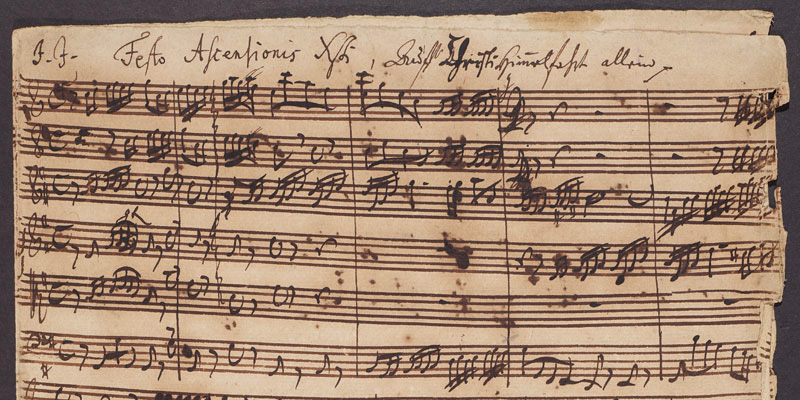 J. J. Festo Ascensionis Xsti, Auff Christi Himmelfahrt allein